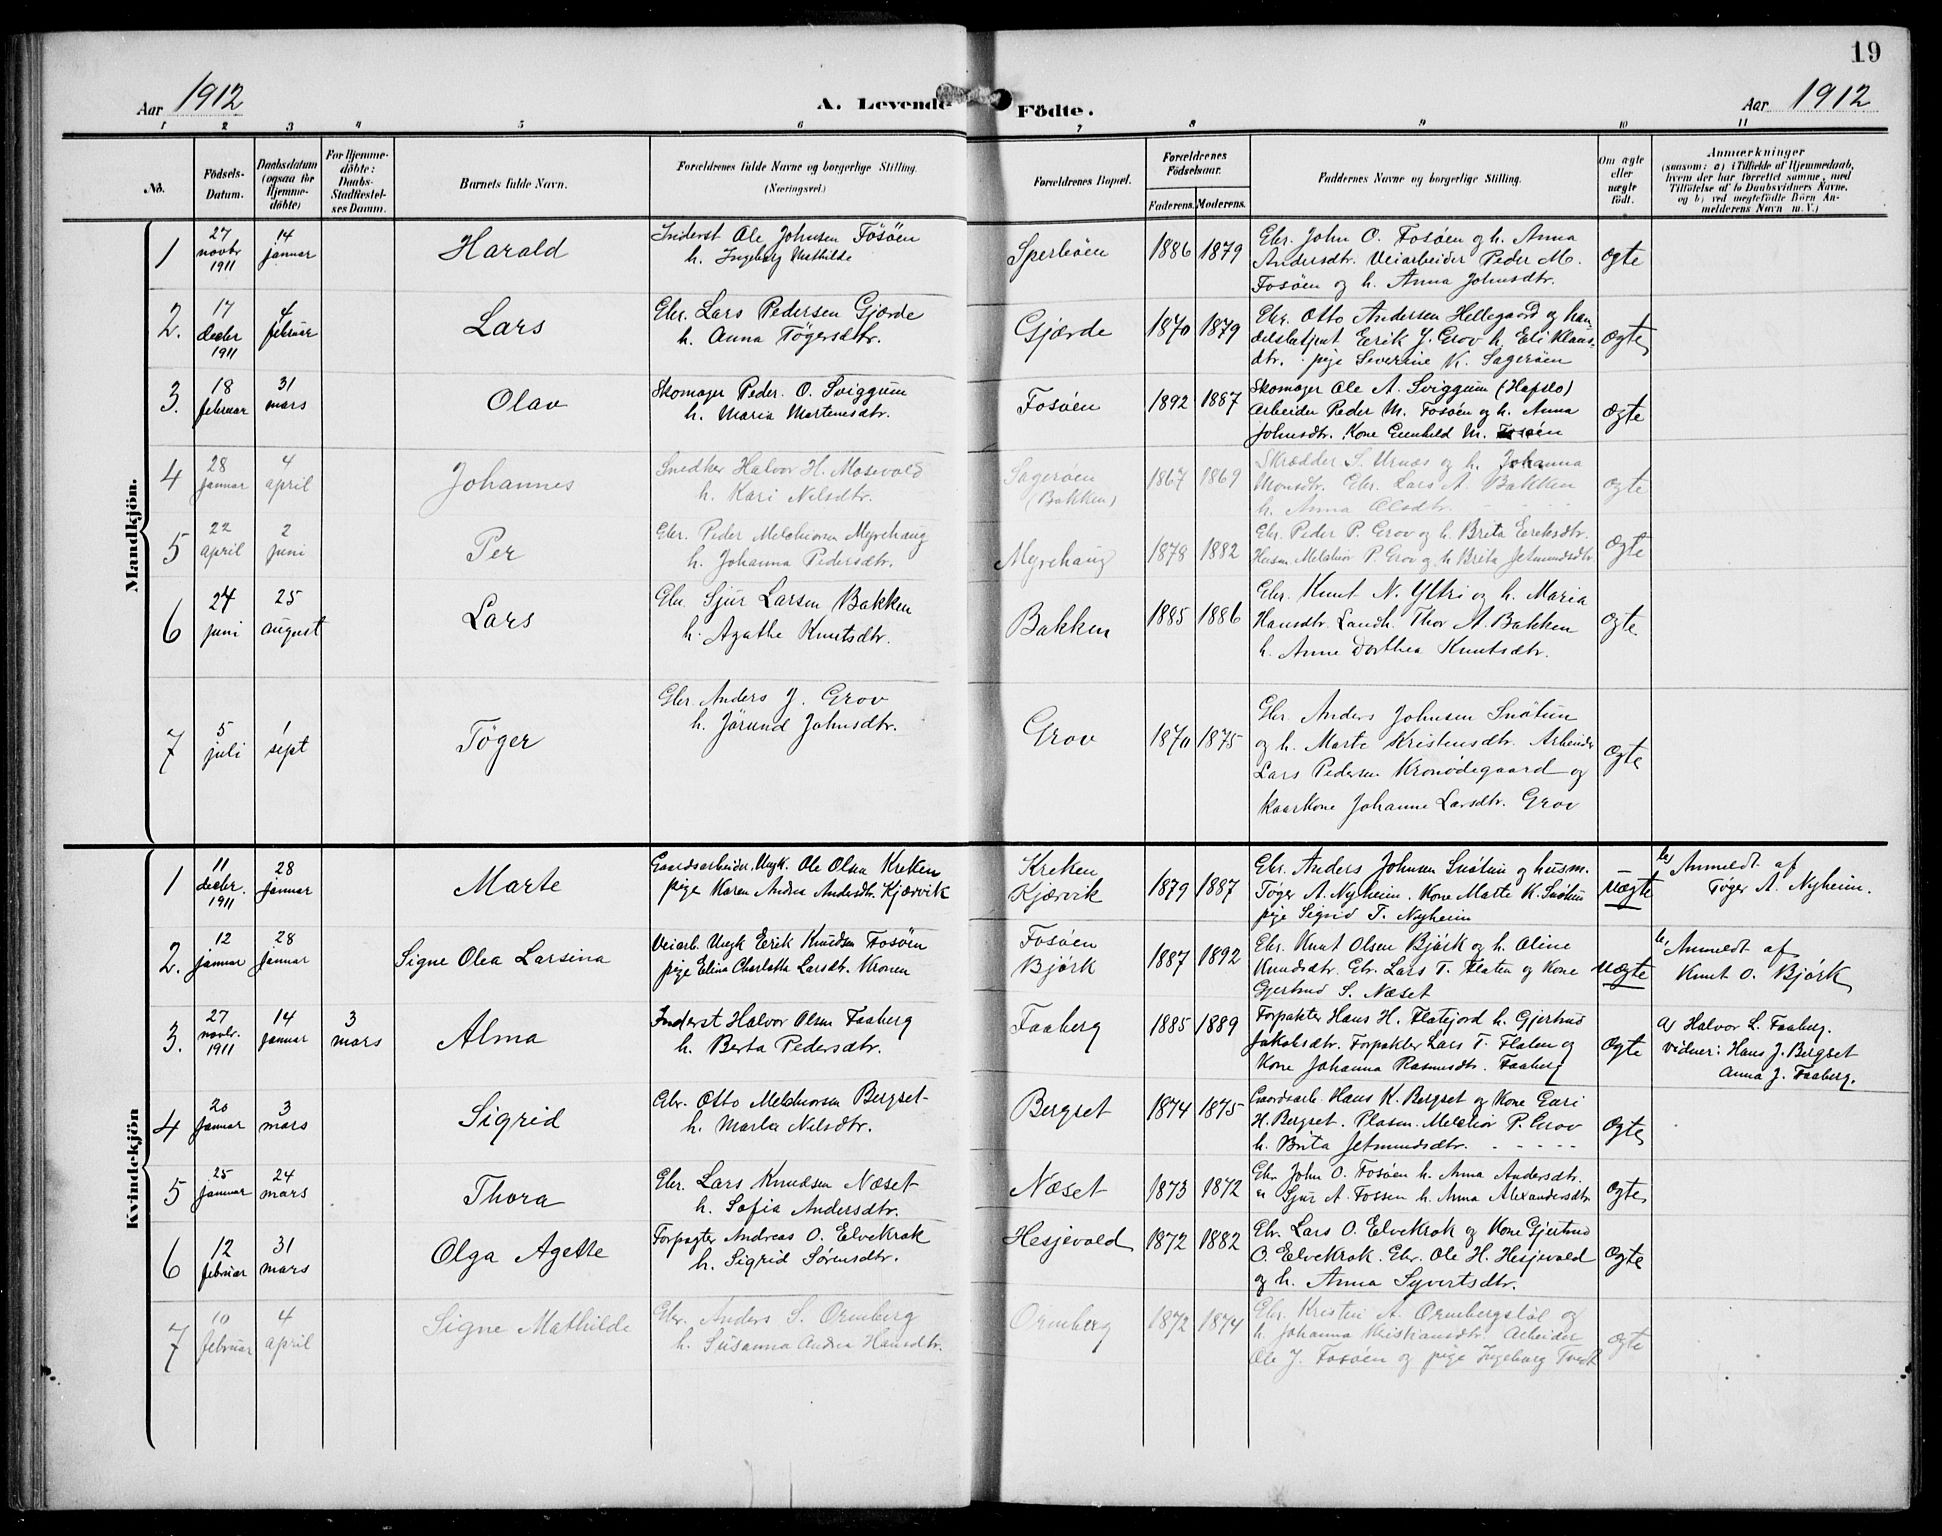 19
Aar 1912 A. Levende Födte. Aar 1912
1 2 3 4 5 6 7 8 9 10 11
No.
Födsels-
Datum.
Daabsdatum
(ogsaa for
Hjemme-
döbte)
For Hjemme-
döbte:
Daabs-
Stadfæstel-
ses Datum.
Barnets fulde Navn.
Forældrenes fulde Navne og borgerlige Stilling.
(Næringsvei.)
Forældrenes Bopæl.
Forældrenes
Födselsaar.
Faderens. Moderens.
Faddernes Navne og borgerlige Stilling.
Om ægte
eller
uægte
født.
Anmærkninger
(saasom: a) i Tilfælde af Hjemmedaab,
hvem der har forrettet samme, med
Tilföielse af to Daabsvidners Navne.
og b) ved uægtefödte Börn An-
melderens Navn m. V.)
Mandkjön.
1
27
novbr
1911
14
januar
Harald
Inderst Ole Johnsen Fösöen
h. Ingeborg Mathilde
Sperleöen
1886 1879
Gbr. John O. Fosöen og h. Anna
Andersdtr. Veiarbeider Peder M.
Fosöen og h. Anna Johnsdtr.
ægte
2.
17
decbr
1911
4
februar
Lars
Gbr. Lars Pedersen Gjærde
h. Anna Tögersdtr.
Gjærde
1870 1879
Gbr. Otto Andersen Hellegaard og han-
delsbetjent Eerik J. Grov h. Eli Klaus-
dtr. pige Severine K. Sageröen
ægte
3.
18
februar
31
mars
Olav
Skomager Peder O. Sviggum
h. Maria Martensdtr.
Fosöen
1892 1887
Skomager Ole A. Sviggum (Hafslo)
Arbeider Peder M. Fosöen og h. Anna
Johnsdtr. Kone Gunhild M. Fosöen
ægte
4
28
januar
4
april
Johannes
Snedker Halvor H. Mosevold
h. Kari Nilsdtr.
Sageröen
(Bakken)
1867 1869
Skrædder S. Urnæs og h. Johanna
Monsdtr. Gbr. Lars A. Bakken
h. Anna Olsdtr.
ægte
5
22
april
2
juni
Per
Gbr. Peder Melchiorsen Myrehaug
h. Johanna Pedersdtr.
Myrehaug
1878 1882
Gbr. Peder P. Grov og h. Brita Eeriksdtr.
Husm. Melchior P. Grov og h. Brita Jetmundsdtr.
ægte
6
24
juni
25
august
Lars
Gbr. Sjur Larsen Bakken
h. Agathe Knutsdtr.
Bakken
1885 1886
Gbr. Knut N. Yttri og h. Maria
Hansdtr. Landh. Thor A. Bakken
h. Anne Dorthea Knutsdtr.
ægte
7
5
juli
1
sept
Töger
Gbr. Anders J. Grov
h. Jörund Johnsdtr.
Grov
1870 1875
Gbr. Anders Johnsen Snötun
og h. Marte Kristensdtr. Arbeider
Lars Pedersen Kronödegaard og
kaarkone Johanne Larsdtr. Grov
ægte
Kvindekjön
1
11
decbr.
1911
28
januar
Marte
Gaardsarbeider Ungk. Ole Olsen Kreken
pige Karen Andrea Andersdtr. Kjærvik
Kreken
Kjærvik
1879 1887
Gbr. Anders Johnsen Snötun og husm.
Töger A. Nyheim. Kone Marte K. Snötun
pige Sigrid T. Nyheim
uægte
b) Anmeldt af
Töger A. Nyheim.
2.
12
januar
28
januar
Signe Olea Larsina
Veiarb. Ungk Eerik Knudsen Fosöen
pige Eline Charlotta Larsdtr. Kronen
Fosöen
Bjórk
1887 1892
Gbr. Knut Olsen Bjórk og h. Oline
Knudsdtr. Gbr. Lars T. Flaten og Kone
Gjertrud S. Næset
uægte
b) Anmeldt af
Knut O. Bjórk
3.
27
novbr.
1911
14
januar
3
mars
Alma
Inderst Halvor Olsen Faaberg
h. Berta Pedersdtr.
Faaberg
1885 1889
Forpakter Hans H. Flatejord h. Gjertrud
Jakobsdtr. Forpakter Lars T. Flaten og
Kone Johanna Rasmusdtr. Faaberg
ægte
a) Halvor L. Faaberg.
Vidner: Hans J. Bergset
Anna J. Faaberg.
4
20
januar
3
mars
Sigrid
Gbr. Otto Melchiorsen Bergset
h. Marta Nilsdtr.
Bergset
1874 1875
Gaardsarb. Hans K. Bergset og Kone Guri
H. Bergset. Pladsm. Melchior P. Grov
h. Brita Jetmundsdtr. - - - - -
ægte
5
25
januar
24
mars
Thora
Gbr. Lars Knudsen Næset
h. Sofia Andersdtr.
Næset
1873 1872
Gbr John O. Fosöen h. Anna Andersdtr.
" Sjur A. Fossen h. Anna Alexandersdtr
ægte
6
12
februar
31
mars
Olga Agethe
Forpagter Andreas O. Elvekrok
h. Sigrid Sörensdtr.
Hesjevold
1872 1882
Gbr. Lars O. Elvekrok og Kone Gjertrud
O. Elvekrok. Gbr. Ole H. Hesjevold
og h. Anna Syvertsdtr.
ægte
7
10
februar
4
april
Signe Mathilde
Gbr. Anders S. Ormberg
h. Susanna Andrea Hansdtr.
Ormberg
1872 1874
Gbr. Kristen A. Ormbergstöl og
h. Johanna Kristiansdtr. Arbeider
Ole J. Fosöen og pige Ingeborg Tvedt
ægte